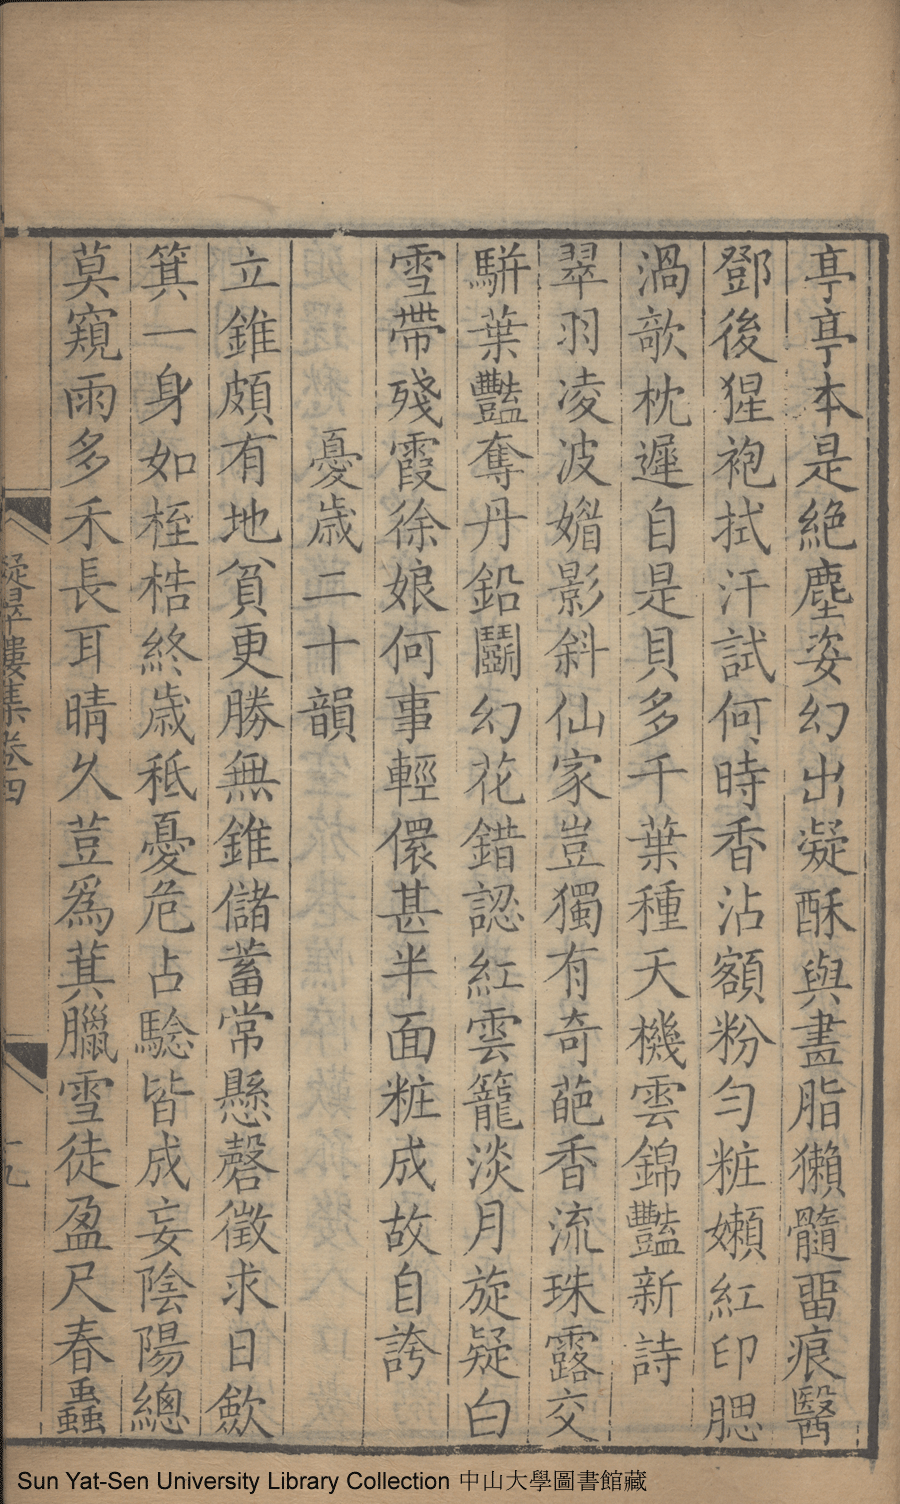 亭亭本是絶塵姿幻出凝酥與畫脂獺髓畱痕醫
鄧後猩袍拭汗試何時香沾額粉勻粧嬾紅印腮
渦欹枕遲自是貝多千葉種天機雲錦豔新詩
翠羽凌波媚影斜仙家豈獨有奇葩香流珠露交
駢葉豔奪丹鉛鬭幻花錯認紅雲籠淡月旋疑白
雪帶殘霞徐娘何事輕儇甚半面粧成故自誇
憂歲二十韻
立錐頗有地貧更勝無錐儲蓄常懸罄徵求日歛
箕一身如桎梏終歲秪憂危占驗皆成妄陰陽總
莫窺雨多禾長耳晴久荳爲萁臘雪徒盈尺春蟲
凝翠樓集卷四
十九
Sun Yat-Sen University Library Collection 中山大學圖書館藏